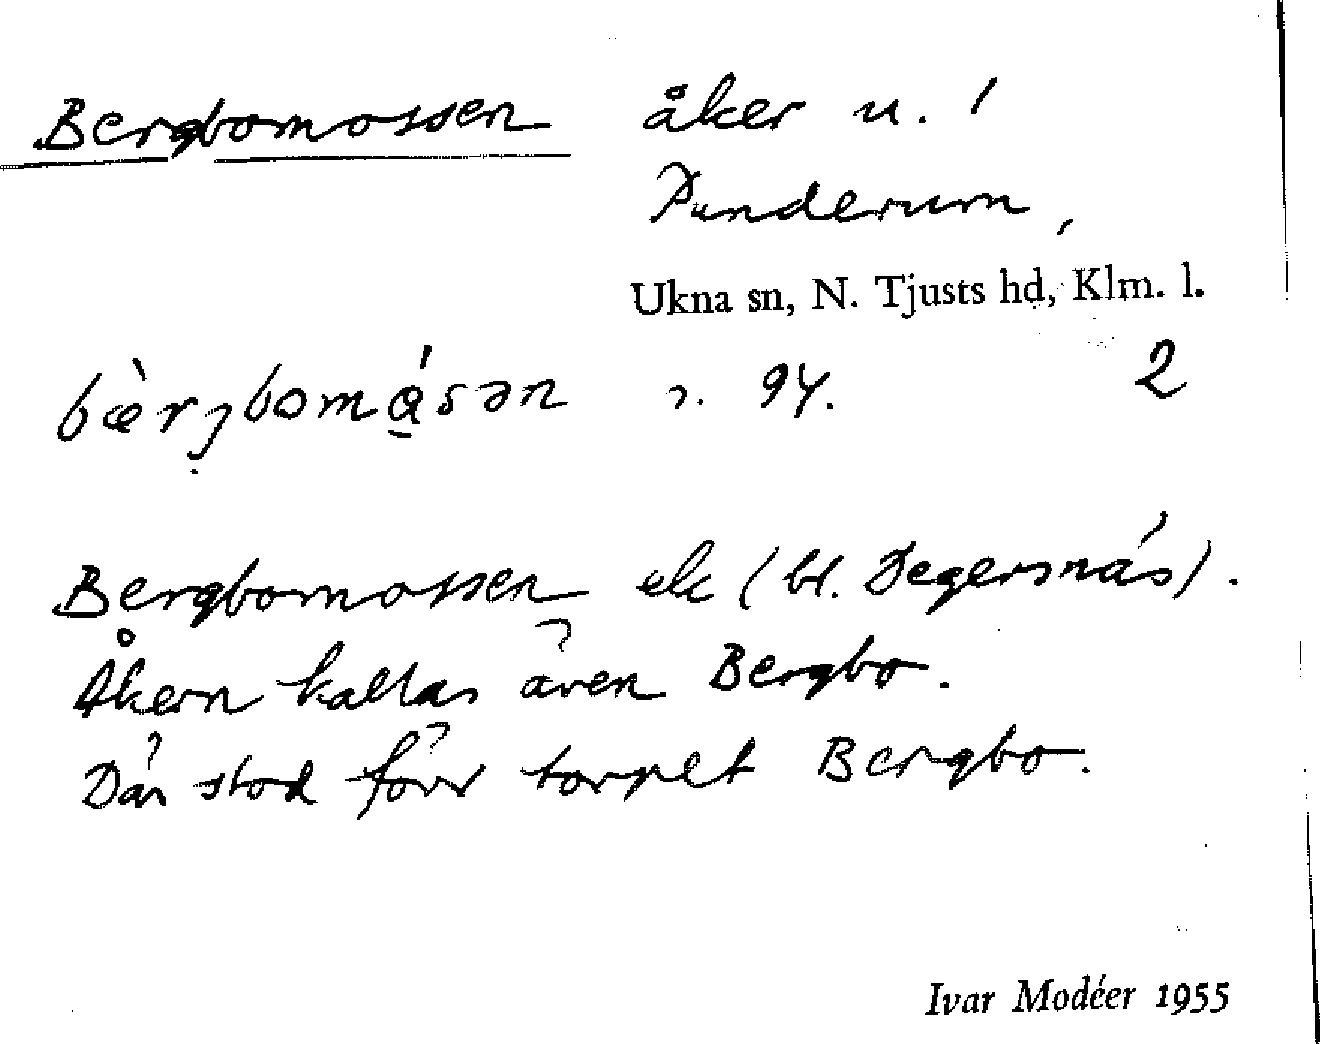 Bergbomossen åker u. 1
Punderum,
Ukna sn, N. Tjusts hd, Klm. l.
bæ̀rjbomɑ́sən 94. 2
Bergbomossen ek (bl. Degersnäs).
Åkern kallas även Bergbo.
Där stod förr torpet Bergbo.
Ivar Modéer 1955